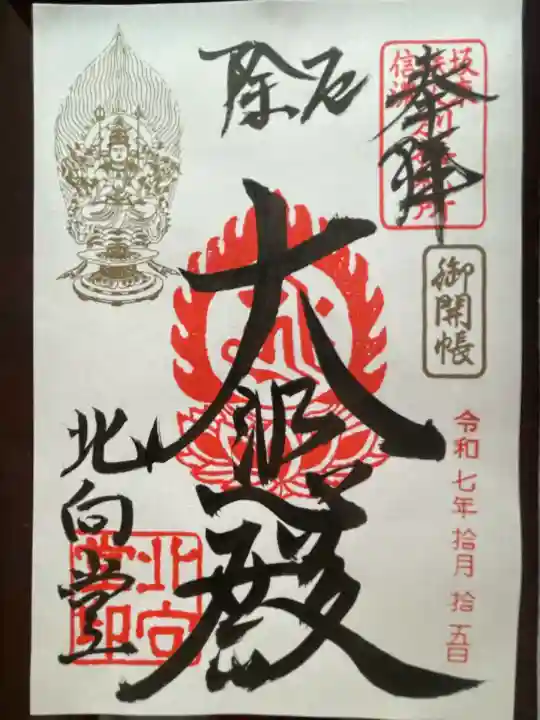 奉拝
御開帳
令和七年拾月拾五日
厄除
大悲殿
北向堂
北向堂印